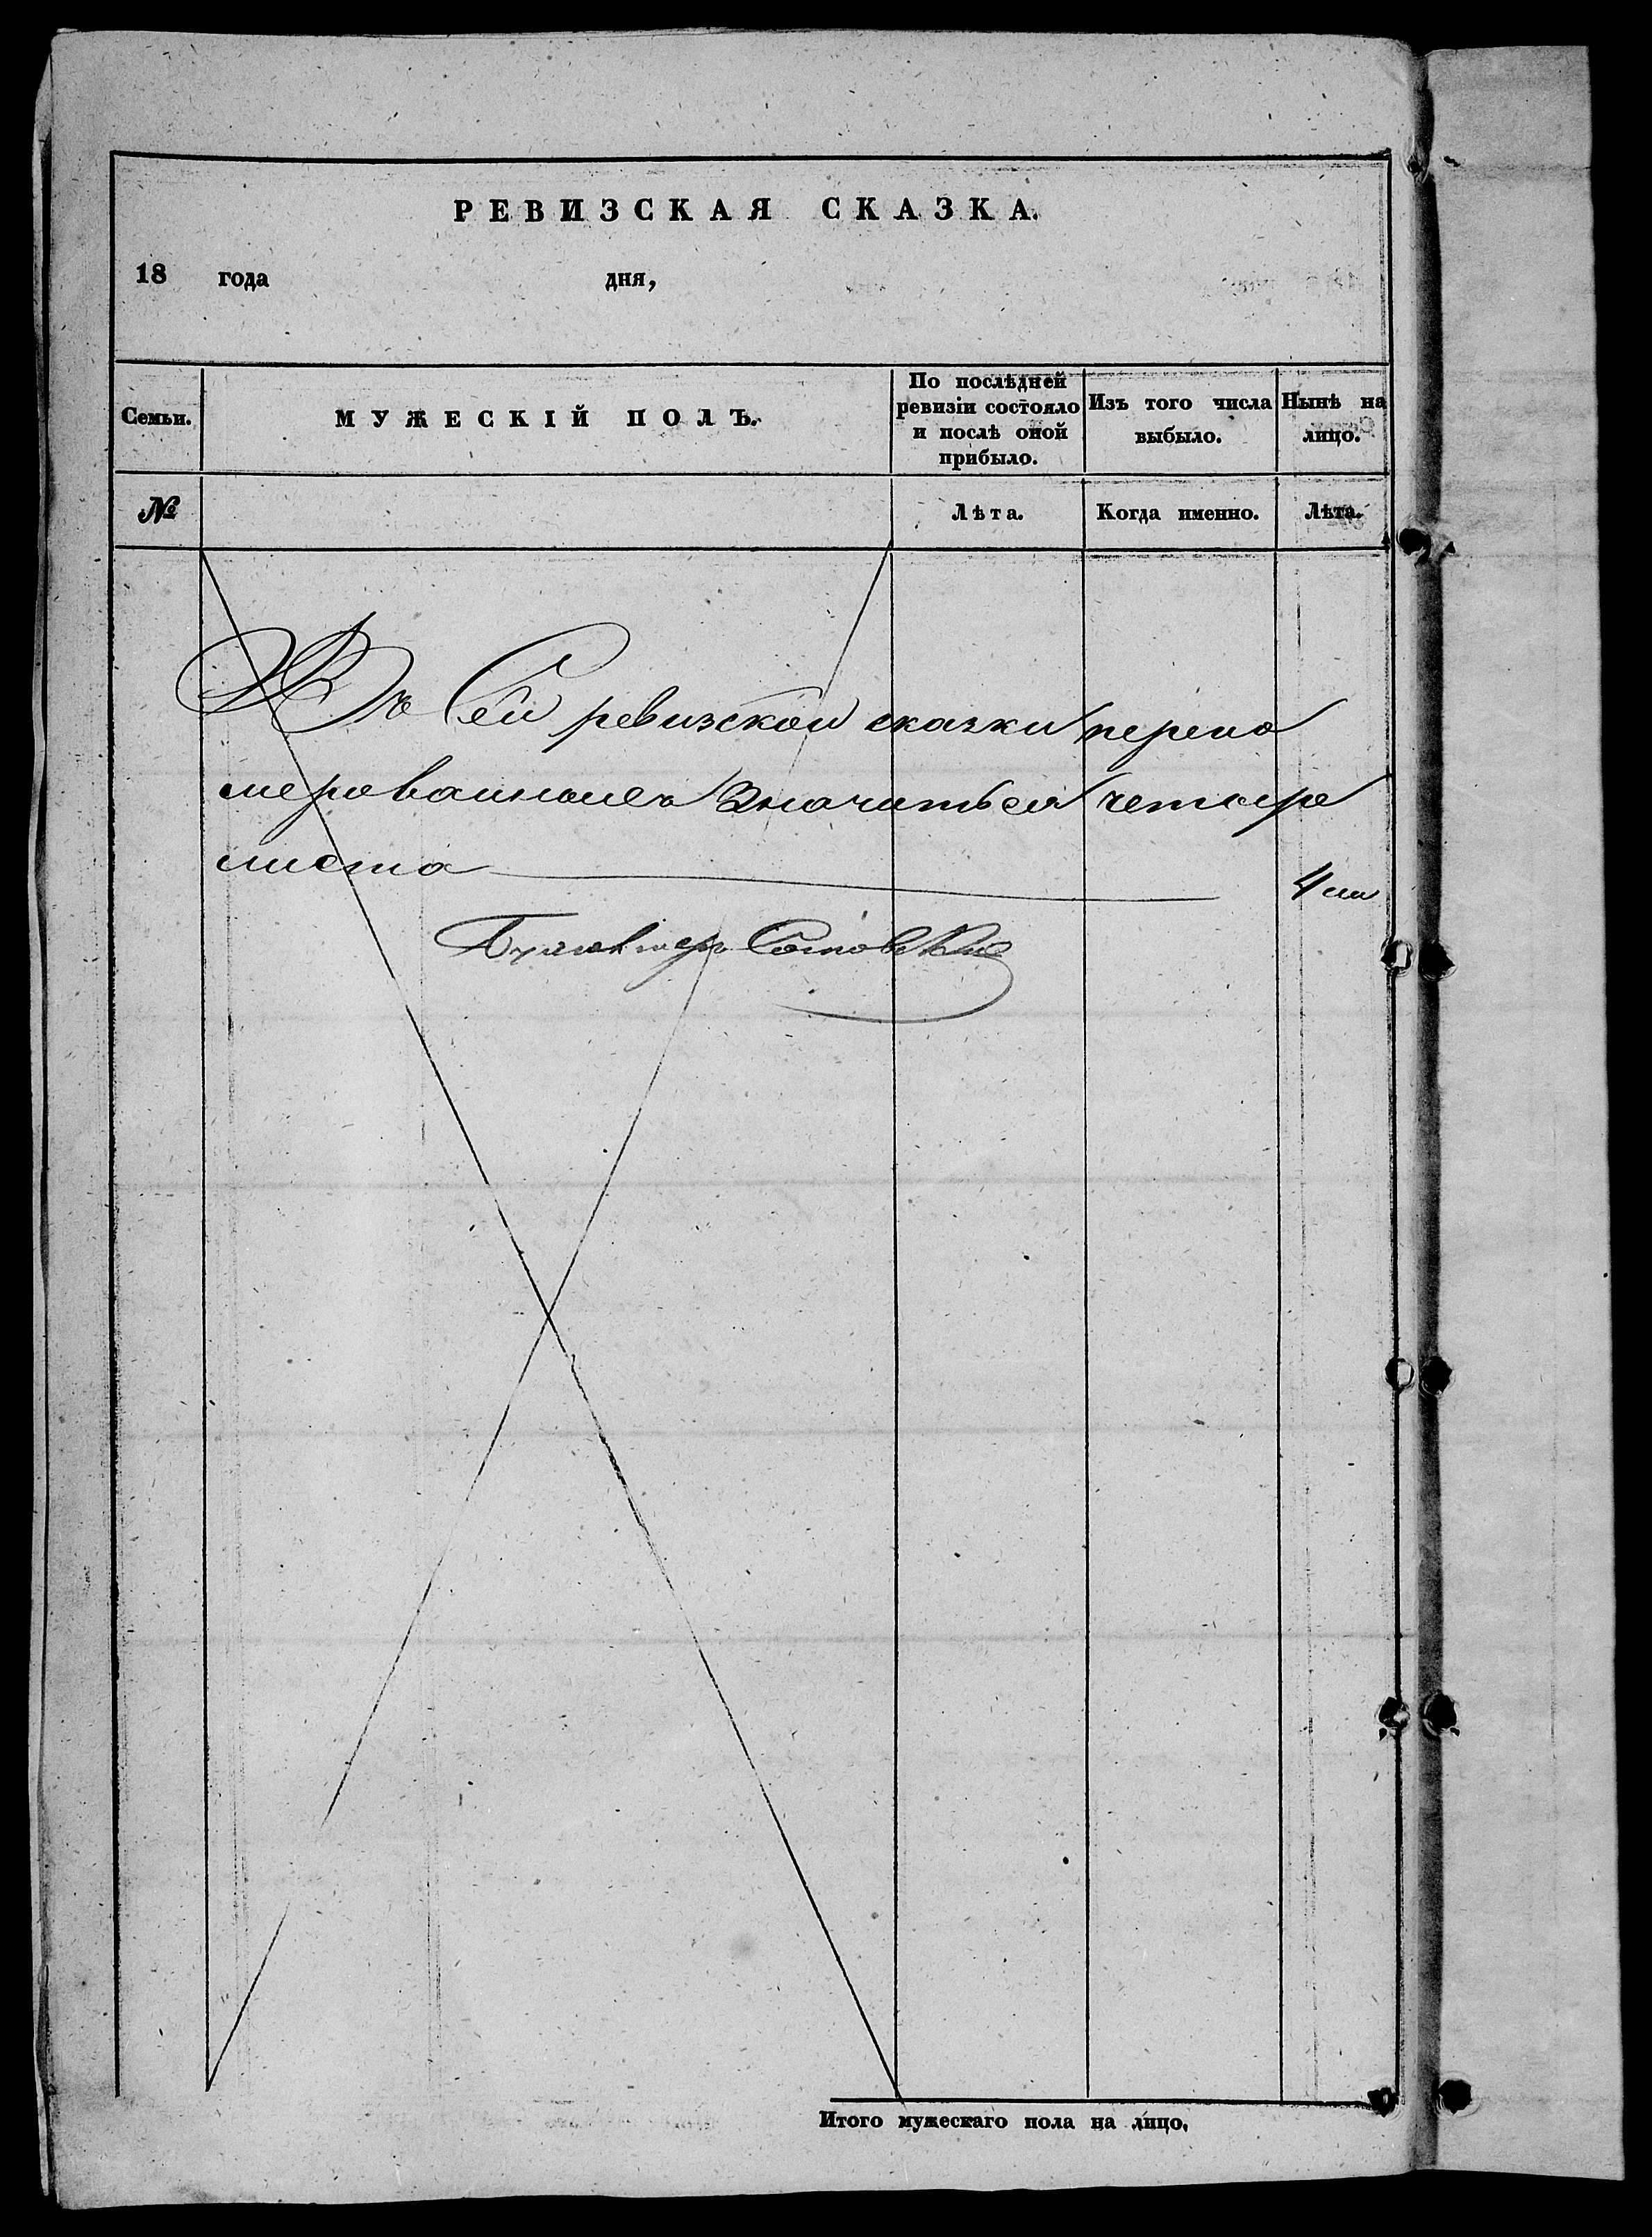 РЕВИЗСКАЯ СКАЗКА.
18 года дня,
Семьи.
МУЖЕСКІЙ ПОЛЪ.
По послѣдней
ревизіи состояло
и послѣ оной
прибыло.
Изъ того числа
выбыло.
Нынѣ на
лицо.
№
Лѣта.
Когда именно.
Лѣта.
Въ Сей ревизской сказки перено
мерованныхъ Значиться четыре
листа 4 ли
Бухгалтеръ
Итого мужескаго пола на лицо.